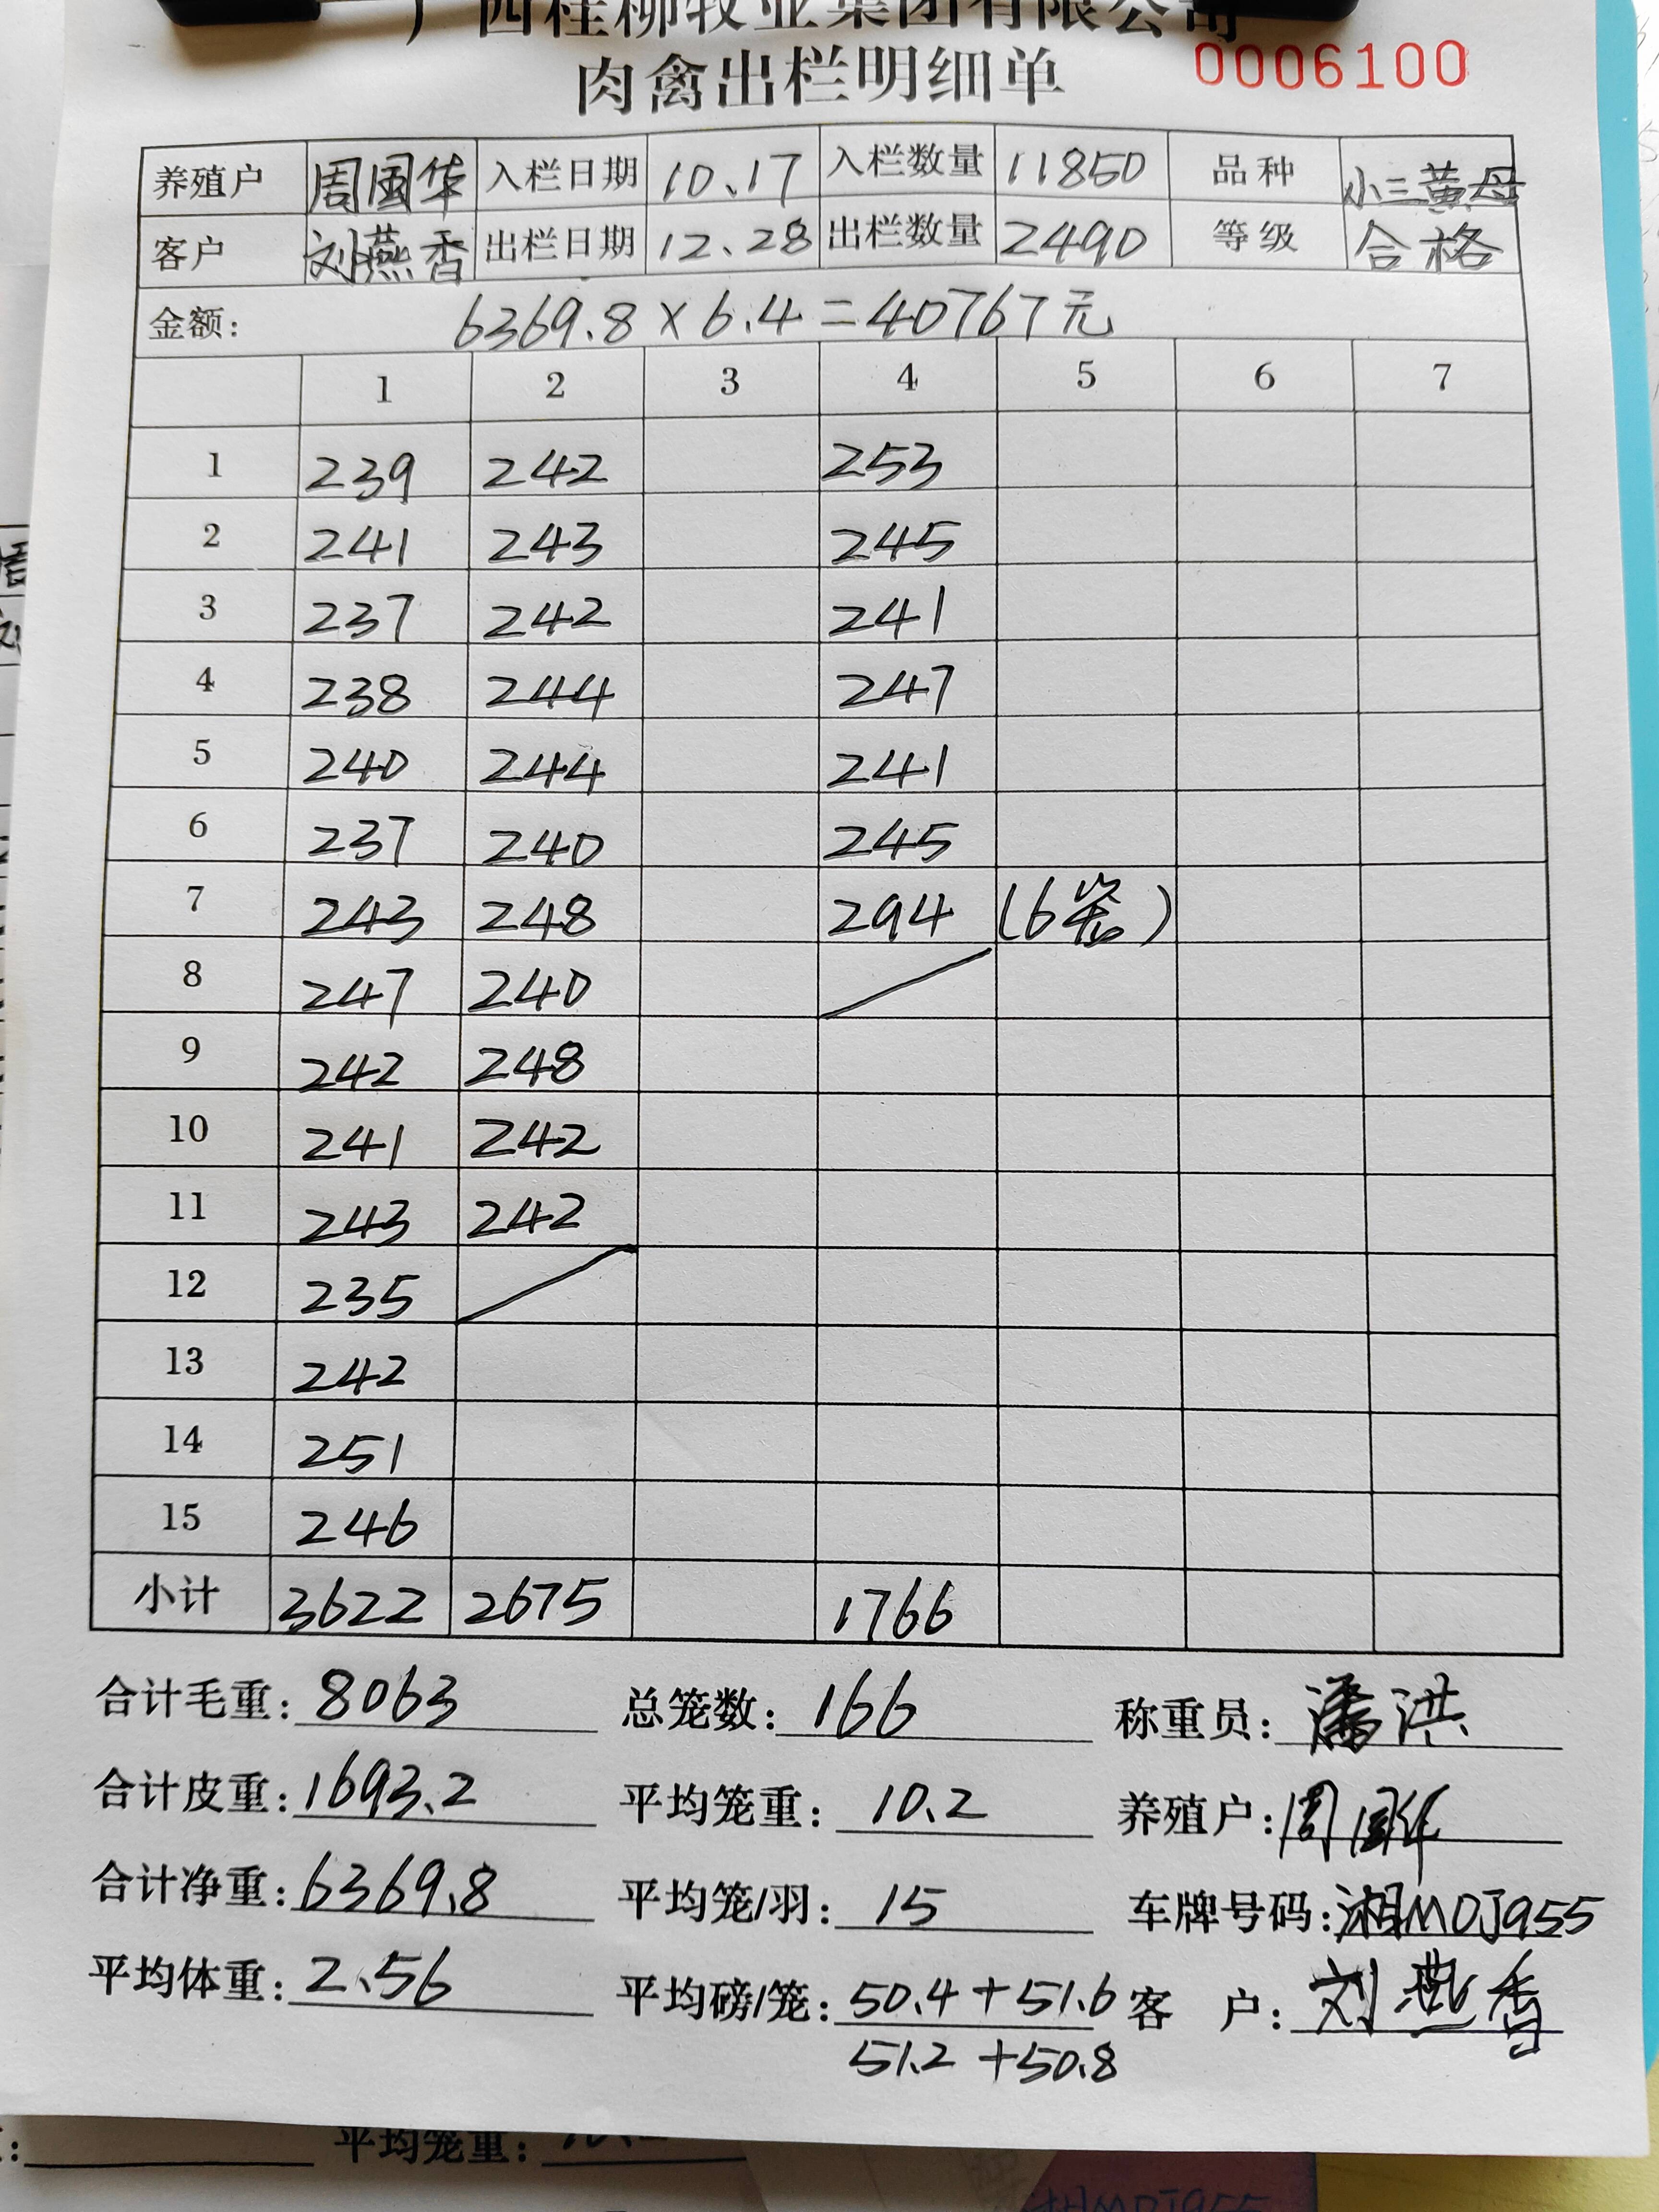 广西桂柳牧业集团有限公司
肉禽出栏明细单 0006100
养殖户 周国华 入栏日期 10.17 入栏数量 11850 品种 小三黄母
客户 刘燕香 出栏日期 12.28 出栏数量 2490 等级 合格
金额: 6369.8×6.4=40767元
1 2 3 4 5 6 7
1 239 242 253
2 241 243 245
3 237 242 241
4 238 244 247
5 240 244 241
6 237 240 245
7 243 248 294 (6笼)
8 247 240
9 242 248
10 241 242
11 243 242
12 235
13 242
14 251
15 246
小计 3622 2675 1766
合计毛重: 8063 总笼数: 166 称重员: 潘洪
合计皮重: 1693.2 平均笼重: 10.2 养殖户: 周国华
合计净重: 6369.8 平均笼/羽: 15 车牌号码: 湘M0J955
平均体重: 2.56 平均磅/笼: 50.4+51.6 客 户: 刘燕香
51.2+50.8
平均笼重: